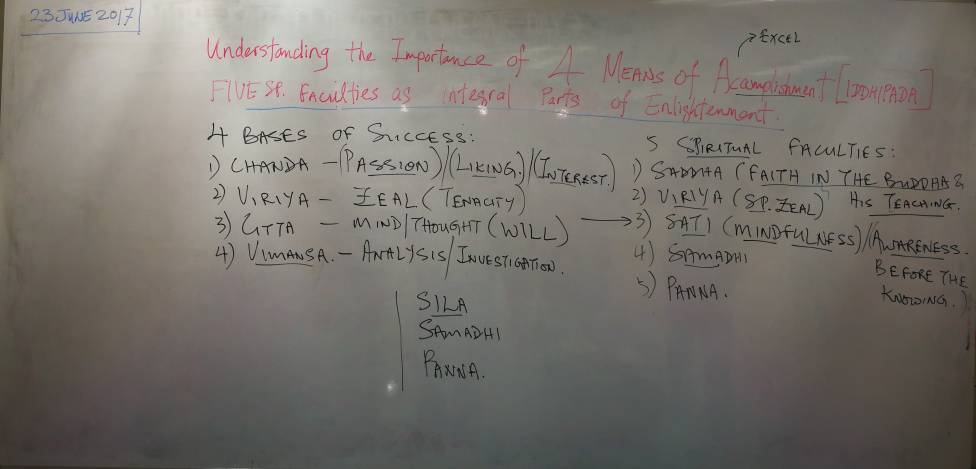 23 JUNE 2017
EXCEL
Understanding the Importance of 4 MEANS of Accomplishment [IDDHIPADA]
FIVE SP. Faculties as integral Parts of Enlightenment.
4 BASES OF SUCCESS:
1) CHANDA - (PASSION)/(LIKING)/(INTEREST)
2) VIRIYA - ZEAL (TENACITY)
3) CITTA - MIND/THOUGHT (WILL)
4) VIMANSA. - ANALYSIS/INVESTIGATION.
5 SPIRITUAL FACULTIES:
1) SADDHA (FAITH IN THE BUDDHA &
2) VIRIYA (SP. ZEAL) HIS TEACHING.
3) SATI (MINDFULNESS)/(AWARENESS.
4) SAMADHI BEFORE THE
5) PANNA. KNOWING.)
SILA
SAMADHI
PANNA.